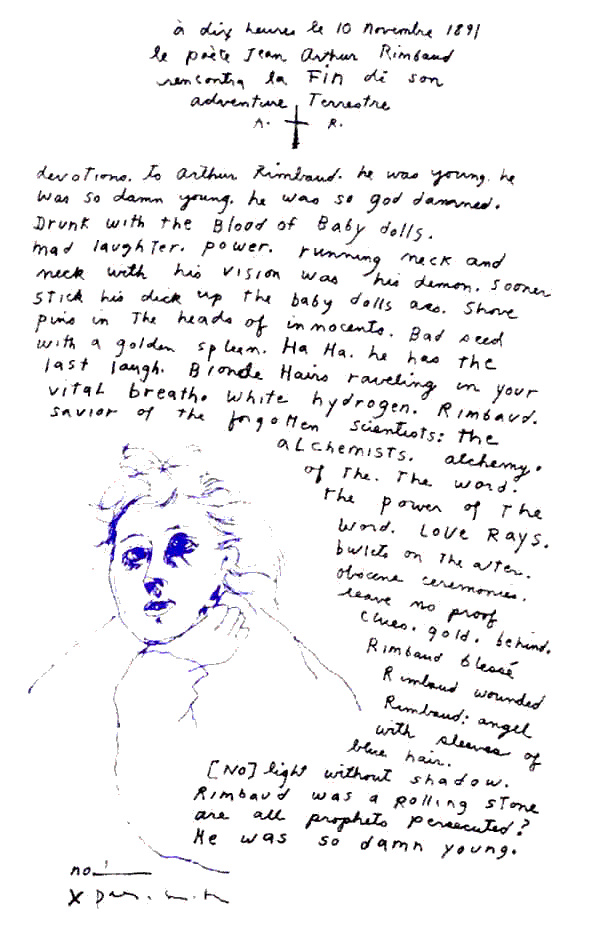 à dix heures le 10 novembre 1891
le poète Jean Arthur Rimbaud
rencontra la Fin de son
adventure Terrestre
A. R.
devotions. to arthur Rimbaud. he was young. he
was so damn young. he was so god damned.
Drunk with the Blood of Baby dolls.
mad laughter. power. running neck and
neck with his vision was his demon. sooner
stick his dick up the baby dolls ass. Shove
pins in The heads of innocents. Bad seed
with a golden spleen. Ha Ha. he has the
last laugh. Blonde Hairs raveling in your
vital breath. white hydrogen. Rimbaud.
savior of the forgotten scientists: the
aLchemists. alchemy.
of The. The word.
the power of The
word. LOVE RAYS.
bullets on The alter.
obscene ceremonies.
leave no proof
clues. gold. behind.
Rimbaud blessé
Rimbaud wounded
Rimbaud: angel
with sleeves of
blue hair.
[NO] light without shadow.
Rimbaud was a Rolling STone
are all prophets persecuted?
He was so damn young.
no.
X